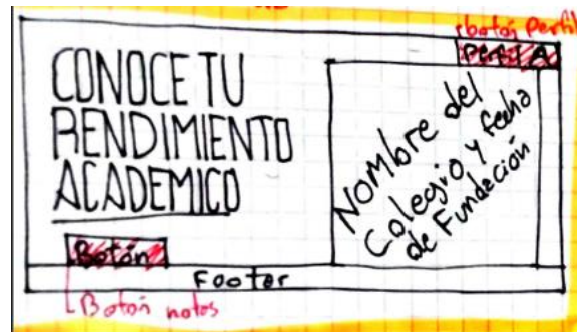 botón Perfil
Perfil A
CONOCE TU
RENDIMIENTO
ACADEMICO
Nombre del
Colegio y fecha
de Fundación
Botón
Footer
Botón notas